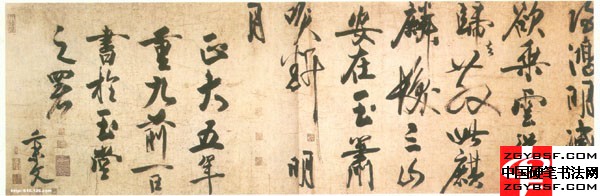 鴻明滅
欲乘雲
歸去散此麒
麟髮三山
安在玉簫
吹斷明
月
正大五年
重九前一日
書於玉堂
之署
秉文
ZGYBSF.COM
中国硬笔书法网
ZGYBSF.COM